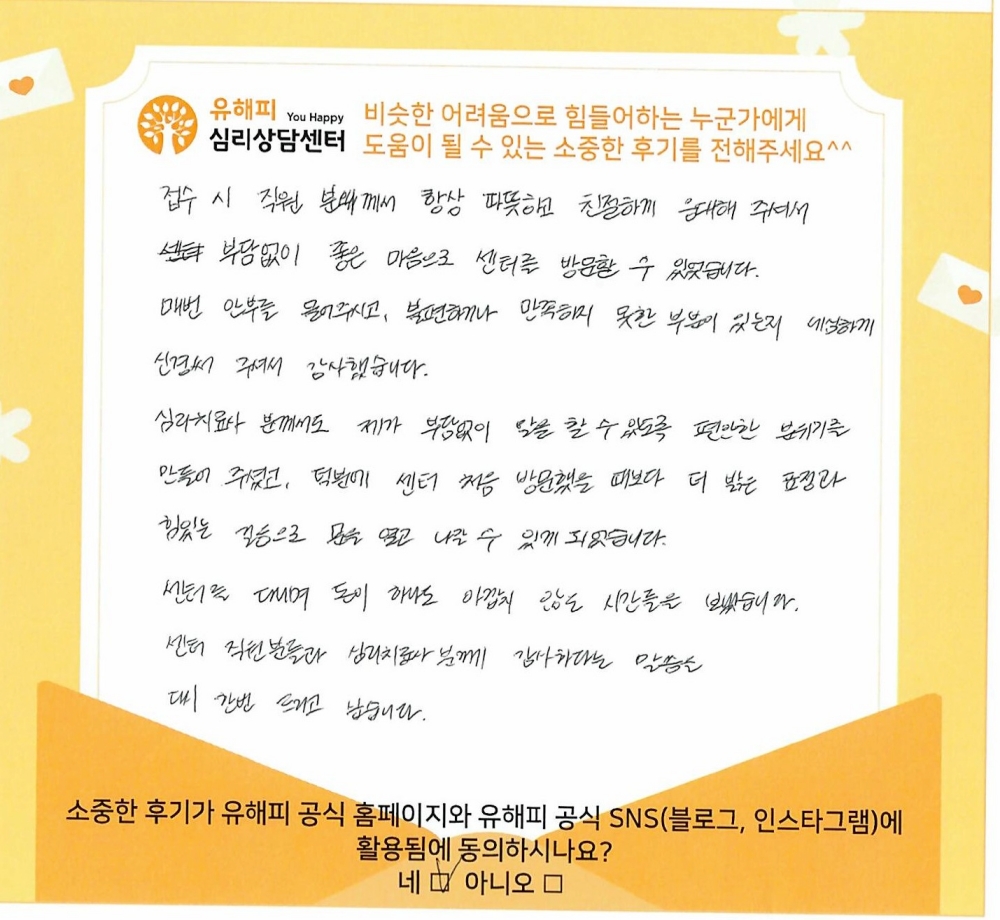 유해피 You Happy
심리상담센터
비슷한 어려움으로 힘들어하는 누군가에게
도움이 될 수 있는 소중한 후기를 전해주세요^^
접수 시 직원 분께서 항상 따뜻하고 친절하게 응대해 주셔서
부담없이 좋은 마음으로 센터를 방문할 수 있었습니다.
매번 안부를 물어주시고, 불편하거나 만족하지 못한 부분이 있는지 세심하게
신경써 주셔서 감사했습니다.
심리치료사 분께서도 제가 부담없이 말을 할 수 있도록 편안한 분위기를
만들어 주셨고, 덕분에 센터 처음 방문했을 때보다 더 밝은 표정과
힘있는 걸음으로 문을 열고 나갈 수 있게 되었습니다.
센터를 다니며 돈이 하나도 아깝지 않은 시간들을 보냈습니다.
센터 직원분들과 심리치료사 분께 감사하다는 말씀을
다시 한번 드리고 싶습니다.
소중한 후기가 유해피 공식 홈페이지와 유해피 공식 SNS(블로그, 인스타그램)에
활용됨에 동의하시나요?
네 ☑ 아니오 □